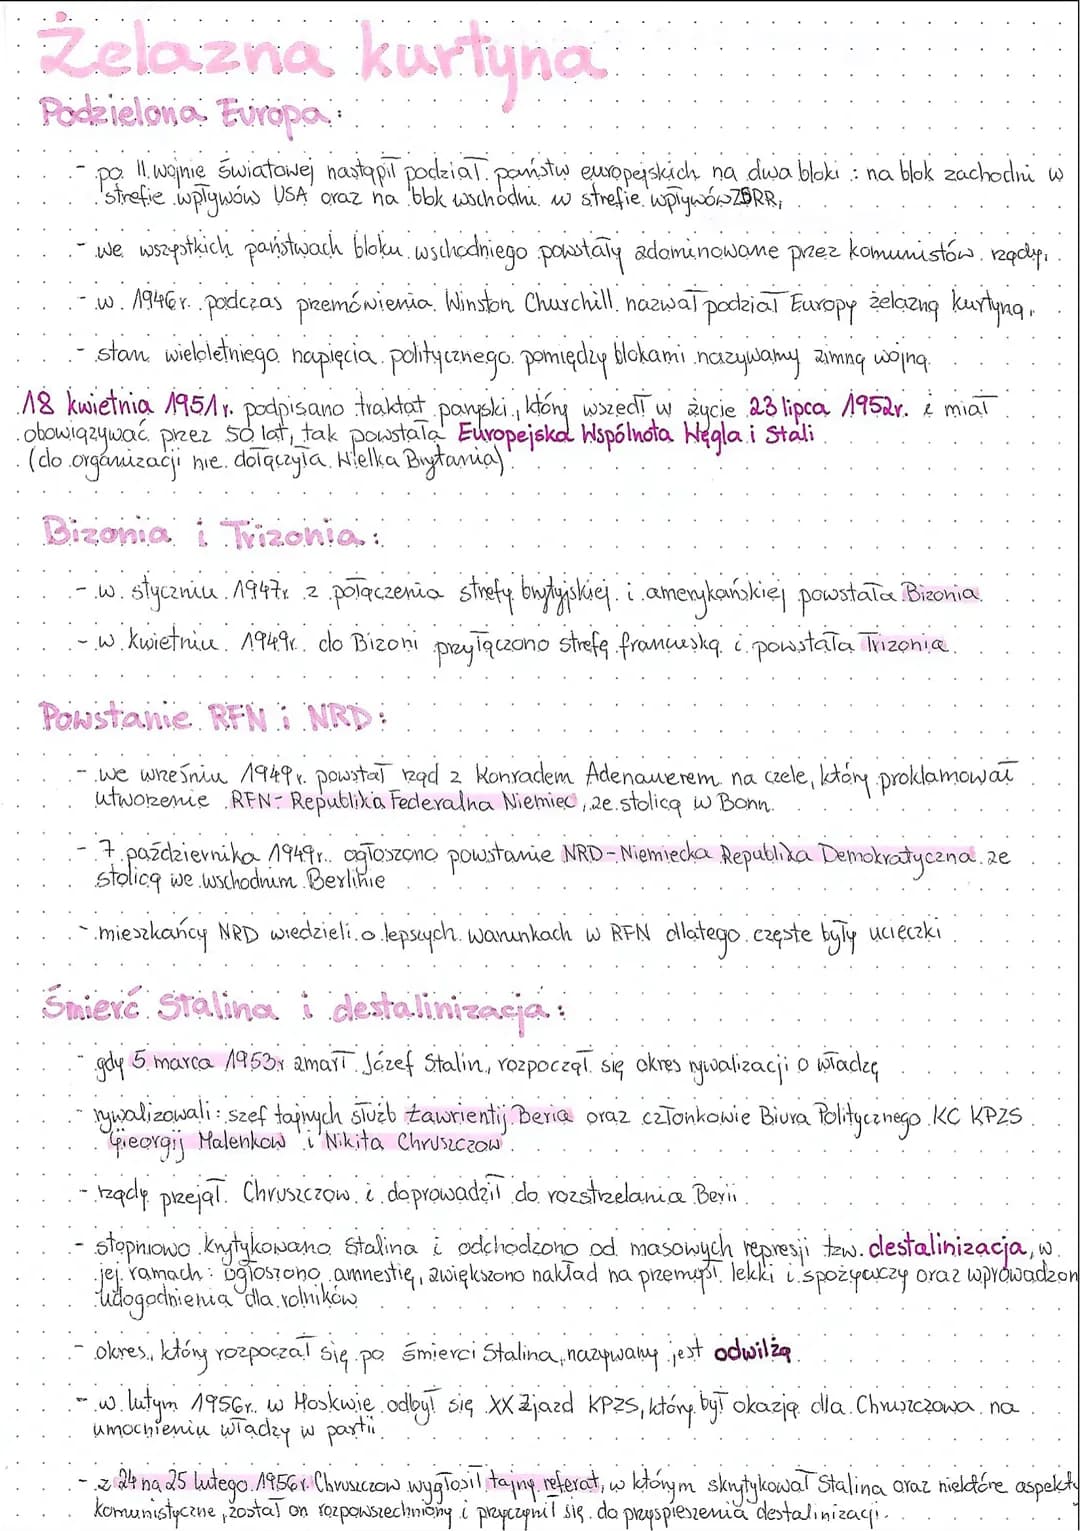 Żelazna kurtyna
Podzielona Europa:
- po II wojnie światowej nastąpił podział państw europejskich na dwa bloki: na blok zachodni w
strefie wpływów USA oraz na blok wschodni w strefie wpływów ZSRR,
- we wszystkich państwach bloku wschodniego powstały zdominowane przez komunistów rządy,
- w 1946r. podczas przemówienia Winston Churchill nazwał podział Europy żelazną kurtyną,
- stan wieloletniego napięcia politycznego pomiędzy blokami nazywamy zimną wojną.
18 kwietnia 1951r. podpisano traktat paryski, który wszedł w życie 23 lipca 1952r. i miał
obowiązywać przez 50 lat, tak powstała Europejska Wspólnota Węgla i Stali
(do organizacji nie dołączyła Wielka Brytania).
Bizonia i Trizonia:
- w styczniu 1947r z połączenia strefy brytyjskiej i amerykańskiej powstała Bizonia.
- w kwietniu 1949r. do Bizoni przyłączono strefę francuską i powstała Trizonia.
Powstanie RFN i NRD:
- we wrześniu 1949r. powstał rząd z Konradem Adenauerem na czele, który proklamował
utworzenie RFN- Republika Federalna Niemiec, ze stolicą w Bonn.
- 7 października 1949r. ogłoszono powstanie NRD-Niemiecka Republika Demokratyczna ze
stolicą we wschodnim Berlinie
- mieszkańcy NRD wiedzieli o lepszych warunkach w RFN dlatego częste były ucieczki.
Śmierć Stalina i destalinizacja:
- gdy 5 marca 1953r zmarł Józef Stalin, rozpoczął się okres rywalizacji o władzę
- rywalizowali: szef tajnych służb Ławrientij Beria oraz członkowie Biura Politycznego KC KPZS
Gieorgij Malenkow i Nikita Chruszczow.
- rządy przejął Chruszczow i doprowadził do rozstrzelania Berii.
- stopniowo krytykowano Stalina i odchodzono od masowych represji tzw. destalinizacja, w
jej ramach: ogłoszono amnestię, zwiększono nakład na przemysł lekki i spożywczy oraz wprowadzon
udogodnienia dla rolników
- okres, który rozpoczął się po śmierci Stalina, nazywamy jest odwilżą.
- w lutym 1956r. w Moskwie odbył się XX Zjazd KPZS, który był okazją dla Chruszczowa na
umocnieniu władzy w partii.
- z 24 na 25 lutego 1956r. Chruszczow wygłosił tajny referat, w którym skrytykował Stalina oraz niektóre aspekty
komunistyczne, został on rozpowszechniony i przyczynił się do przyspieszenia destalinizacji.